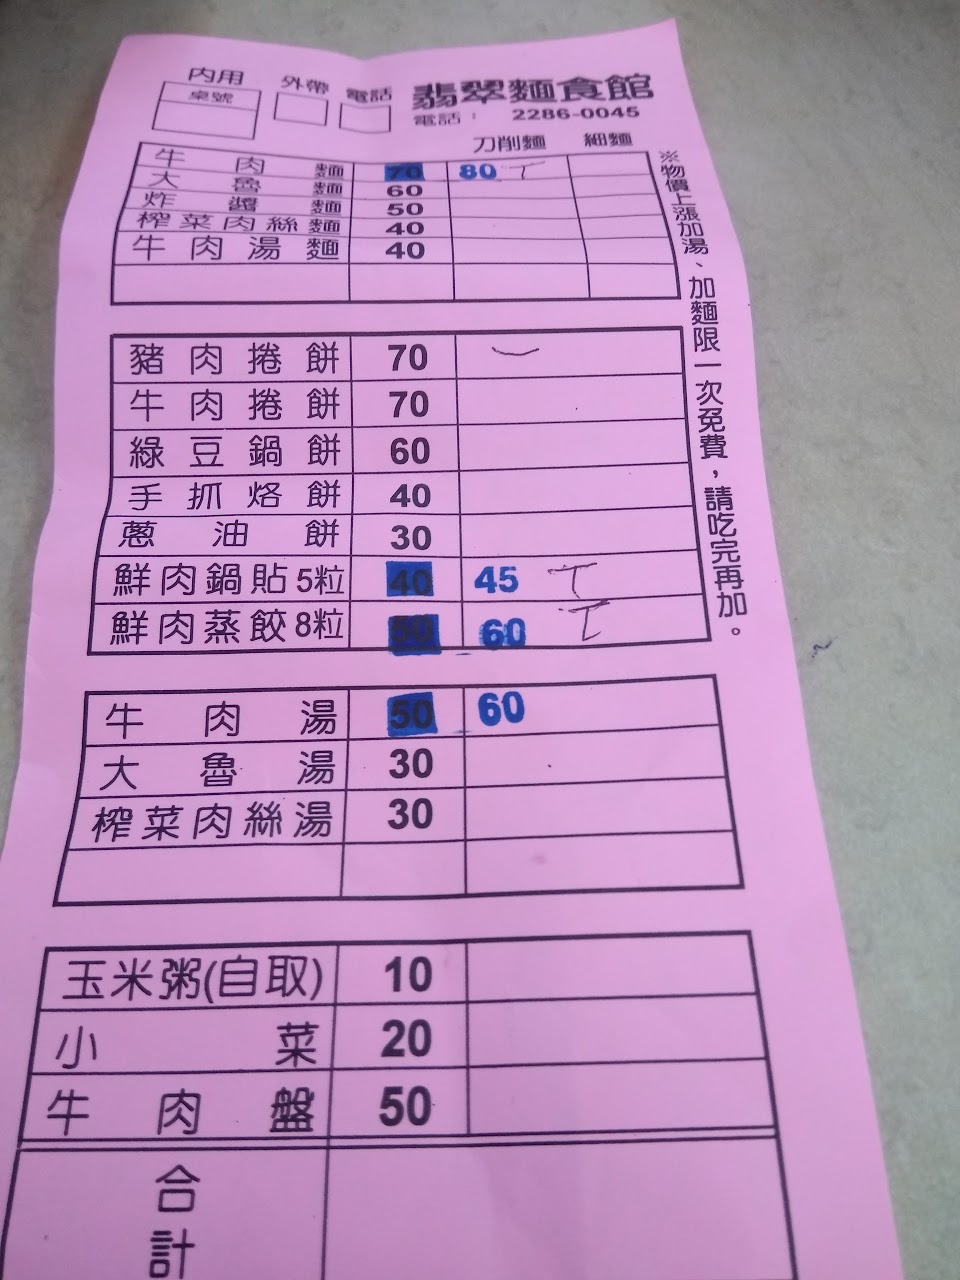 內用 外帶 電話 翡翠麵食館
桌號 電話: 2286-0045
刀削麵 細麵
牛肉麵 70 80
大魯麵 60
炸醬麵 50
榨菜肉絲麵 40
牛肉湯麵 40
豬肉捲餅 70
牛肉捲餅 70
綠豆鍋餅 60
手抓烙餅 40
蔥油餅 30
鮮肉鍋貼5粒 40 45
鮮肉蒸餃8粒 50 60
牛肉湯 50 60
大魯湯 30
榨菜肉絲湯 30
玉米粥(自取) 10
小菜 20
牛肉盤 50
合計
※物價上漲加湯、加麵限一次免費,請吃完再加。